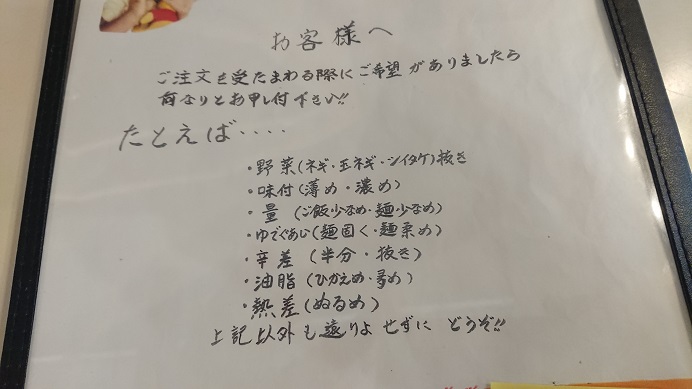 お客様へ
ご注文を受たまわる際にご希望がありましたら
何なりとお申し付下さい!!
たとえば・・・・
・野菜(ネギ・玉ネギ・シイタケ)抜き
・味付(薄め・濃め)
・量 (ご飯少なめ・麺少なめ)
・ゆでぐあい(麺固く・麺柔め)
・辛差 (半分・抜き)
・油脂 (ひかえめ・多め)
・熱差 (ぬるめ)
上記以外も遠りょせずにどうぞ!!